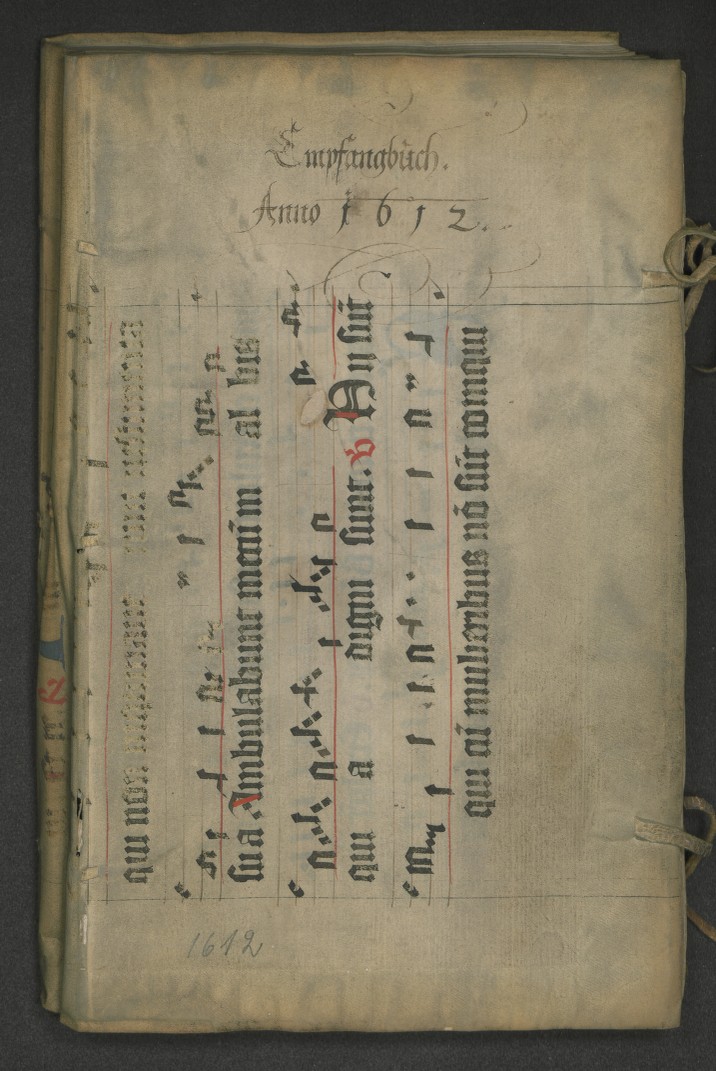 Empfangbuch.
Anno 1612.
qui non
sua Ambulabunt mecū m al bis
qui a digni sunt. ℣ Hy sūt
qui cū mulieribus nō sūt coinqui
1612